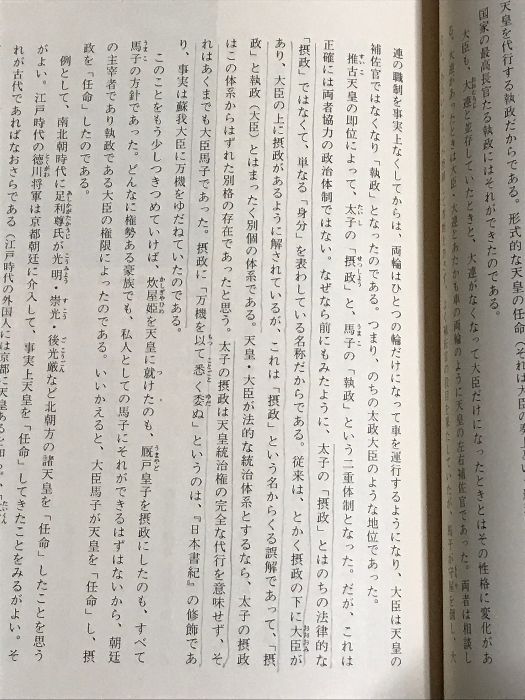 天皇を代行する執政だからである。形式的な天皇の任命（それは
国家の最高長官たる執政にはそれができたのである。
大臣も、大連と並存していたときと、大連がなくなって大臣だけになったときとはその性格に変化があ
大連があったときは大臣・大連とあたかも車の両輪のように天皇の左右補佐官であった。両者は相談し
連の職制を事実上なくしてからは、両輪はひとつの輪だけになって車を運行するようになり、大臣は天皇の
補佐官ではなくなり「執政」となったのである。つまり、のちの太政大臣のような地位であった。
推古天皇の即位によって、太子の「摂政」と、馬子の「執政」という二重体制となった。だが、これは
正確には両者協力の政治体制ではない。なぜなら前にもみたように、太子の「摂政」とはのちの法律的な
「摂政」ではなくて、単なる「身分」を表わしている名称だからである。従来は、とかく摂政の下に大臣が
あり、大臣の上に摂政があるように解されているが、これは「摂政」という名からくる誤解であって、「摂
政」と執政（大臣）とはまったく別個の体系である。天皇・大臣が法的な統治体系とするなら、太子の摂政
はこの体系からはずれた別格の存在であったと思う。太子の摂政は天皇統治権の完全な代行を意味せず、そ
れはあくまでも大臣馬子であった。摂政に「万機を以て悉く委ぬ」というのは、『日本書紀』の修飾であ
り、事実は蘇我大臣に万機をゆだねていたのである。
このことをもう少しつきつめていけば、炊屋姫を天皇に就けたのも、厩戸皇子を摂政にしたのも、すべて
馬子の方針であった。どんなに権勢ある豪族でも、私人としての馬子にそれができるはずはないから、朝廷
の主宰者であり執政である大臣の権限によったのである。いいかえると、大臣馬子が天皇を「任命」し、摂
政を「任命」したのである。
例として、南北朝時代に足利尊氏が光明・崇光・後光厳など北朝方の諸天皇を「任命」したことを思う
がよい。江戸時代の徳川将軍は京都朝廷に介入して、事実上天皇を「任命」してきたことをみるがよい。そ
れが古代であればなおさらである（江戸時代の外国人には京都に天皇あるを知らず、